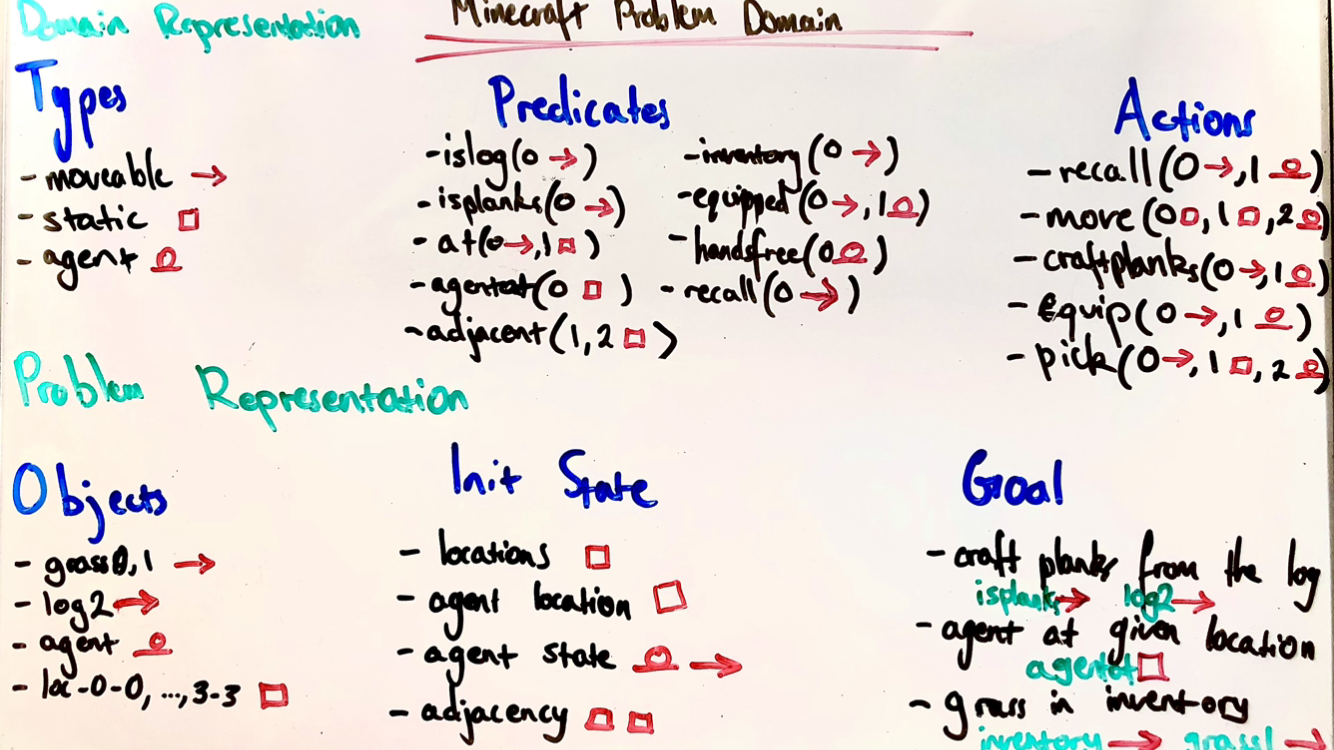 Domain Representation
Minecraft Problem Domain
Types
- moveable →
- static □
- agent
Predicates
- islog(0 →)
- isplanks(0 →)
- at(0→,1 □)
- agentat(0 □)
- adjacent(1,2 □)
- inventory(0 →)
- equipped(0→,1)
- handsfree(0)
- recall(0→)
Actions
- recall(0→,1)
- move(0□,1□,2)
- craftplanks(0→,1)
- equip(0→,1)
- pick(0→,1□,2)
Problem Representation
Objects
- grass0,1 →
- log2→
- agent
- loc-0-0,...,3-3 □
Init State
- locations □
- agent location □
- agent state →
- adjacency □ □
Goal
- craft planks from the log
isplanks→ log2→
- agent at given location
agentat□
- grass in inventory
inventory → grass1 →